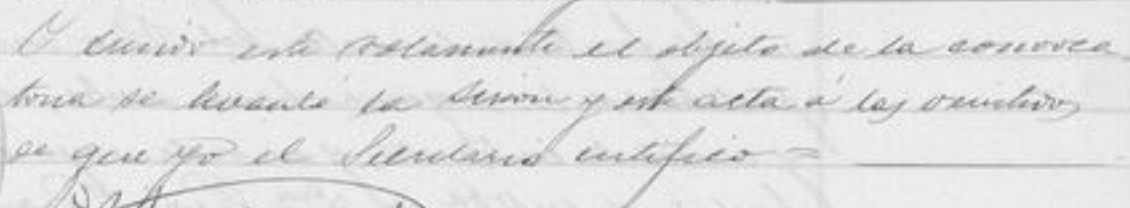 Y siendo este solamente el objeto de la convoca
toria se levantó la sesión y este acta á las
de que yo el Secretario certifico =